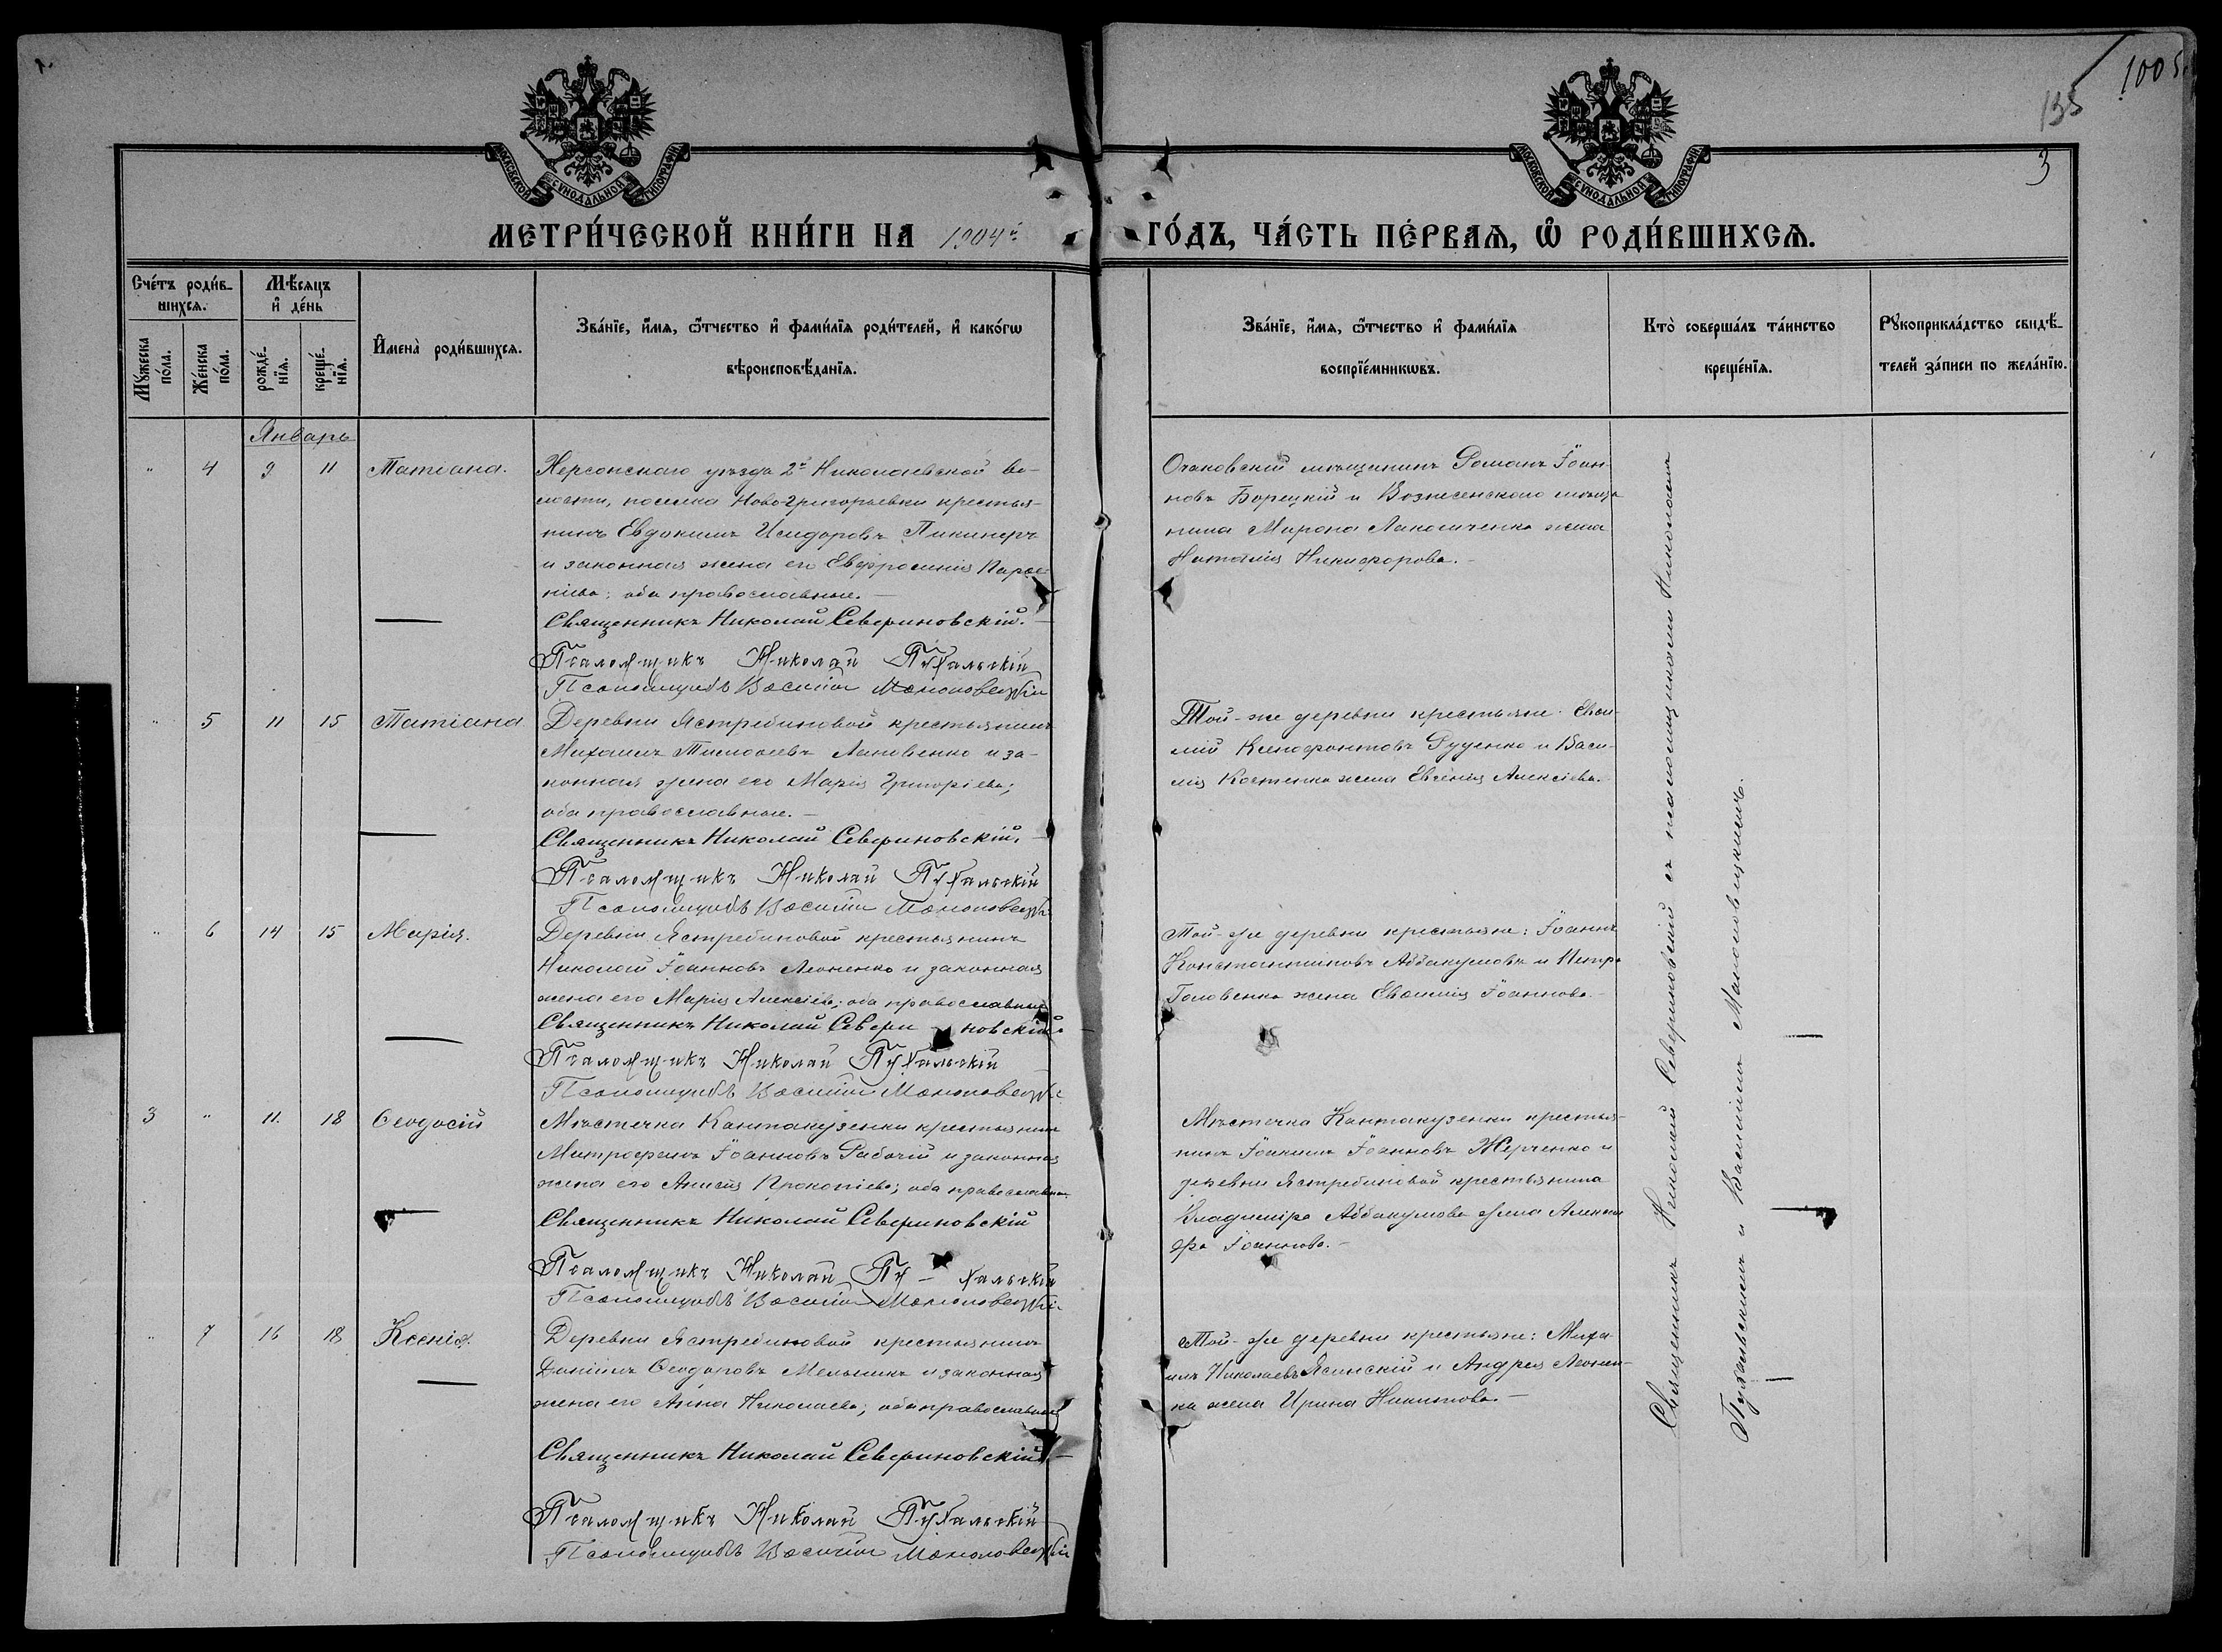 1005
135
3
МОСКОВСКОЙ СУНОДАЛЬНОЙ ТИПОГРАФІИ
МОСКОВСКОЙ СУНОДАЛЬНОЙ ТИПОГРАФІИ
МЕТРИ́ЧЕСКОЙ КНИ́ГИ НА 1904й
ГО́ДЪ, ЧА́СТЬ ПЕ́РВАѦ, Ѿ РОДИ́ВШИХСѦ.
Сче́тъ роди́в-
шихсѧ.
Мѣ́сѧцъ
и҆ де́нь
Мꙋ́жеска
по́ла.
Же́нска
по́ла.
рожде́-
нїѧ.
креще́-
нїѧ.
И҆мена̀ роди́вшихсѧ.
Зва́нїе, и҆́мѧ, ѻ҆́тчество и҆ фами́лїѧ роди́телей, и҆ како́гѡ
вѣроисповѣ́данїѧ.
Зва́нїе, и҆́мѧ, ѻ҆́тчество и҆ фами́лїѧ
воспрїе́мникѡвъ.
Кто̀ соверша́лъ та́инство
креще́нїѧ.
Рꙋкоприкла́дство свидѣ́-
телей за́писи по жела́нїю.
Январь
" 4 9 11 Татіана.
Херсонскаго уѣзда 2й Николаевской во-
лости, поселка Ново-Григорьевки крестья-
нинъ Евдокимъ Исидоровъ Пикинеръ
и законная жена его Евфросинія Парѳе-
нієва; оба православные.
Священникъ Николай Севериновскій.
Псаломщикъ Николай Пухальскій
Псаломщикъ Василій
Очаковскій мѣщанинъ Романъ Іоан-
новъ Борецкій и Вознесенскаго мѣща-
нина Мирона жена
Наталія Никифорова.
" 5 11 15 Татіана
Деревни Ястребиновой крестьянинъ
Михаилъ Тимоѳеевъ и за-
конная жена его Марія Григоріева;
оба православные.
Священникъ Николай Севериновскій.
Псаломщикъ Николай Пухальскій
Псаломщикъ Василій
Той-же деревни крестьяне:
Ксенофонтовъ Руденко и Васи-
лія Костенко жена Евгенія Алексіева.
" 6 14 15 Марія.
Деревни Ястребиновой крестьянинъ
Николай Іоанновъ Леоненко и законная
жена его Марія Алексіева; оба православные
Священникъ Николай Севери новскій.
Псаломщикъ Николай Пухальскій
Псаломщикъ Василій
Той-же деревни крестьяне: Іоаннъ
Константиновъ Аввакумовъ и Петра
Головенко жена Іоаннова.
3 " 11. 18 Ѳеодосій
Мѣстечка Кантакузенки крестьянинъ
Митрофанъ Іоанновъ Рабочій и законная
жена его Анисія Прокопіева; оба православные.
Священникъ Николай Севериновскій
Псаломщикъ Николай Пу - хальскій
Псаломщикъ Василій
Мѣстечка Кантакузенки крестья-
нинъ Іоакимъ Іоанновъ и
деревни Ястребиновой крестьянина
Владиміра Аввакумова жена Алексан-
дра Іоаннова.
" 7 16 18 Ксенія.
Деревни Ястребиновой крестьянинъ
Даніилъ Ѳеодоровъ Мельникъ и законная
жена его Анна Николаева; оба православные
Священникъ Николай Севериновскій.
Псаломщикъ Николай Пухальскій
Псаломщикъ Василій
Той-же деревни крестьяне: Миха-
илъ Николаевъ Ясинскій и Андрея Леонен-
ка жена Ирина Никитова.
Священникъ Николай Севериновскій съ псаломщиками Николаемъ
Пухальскимъ и Василіемъ